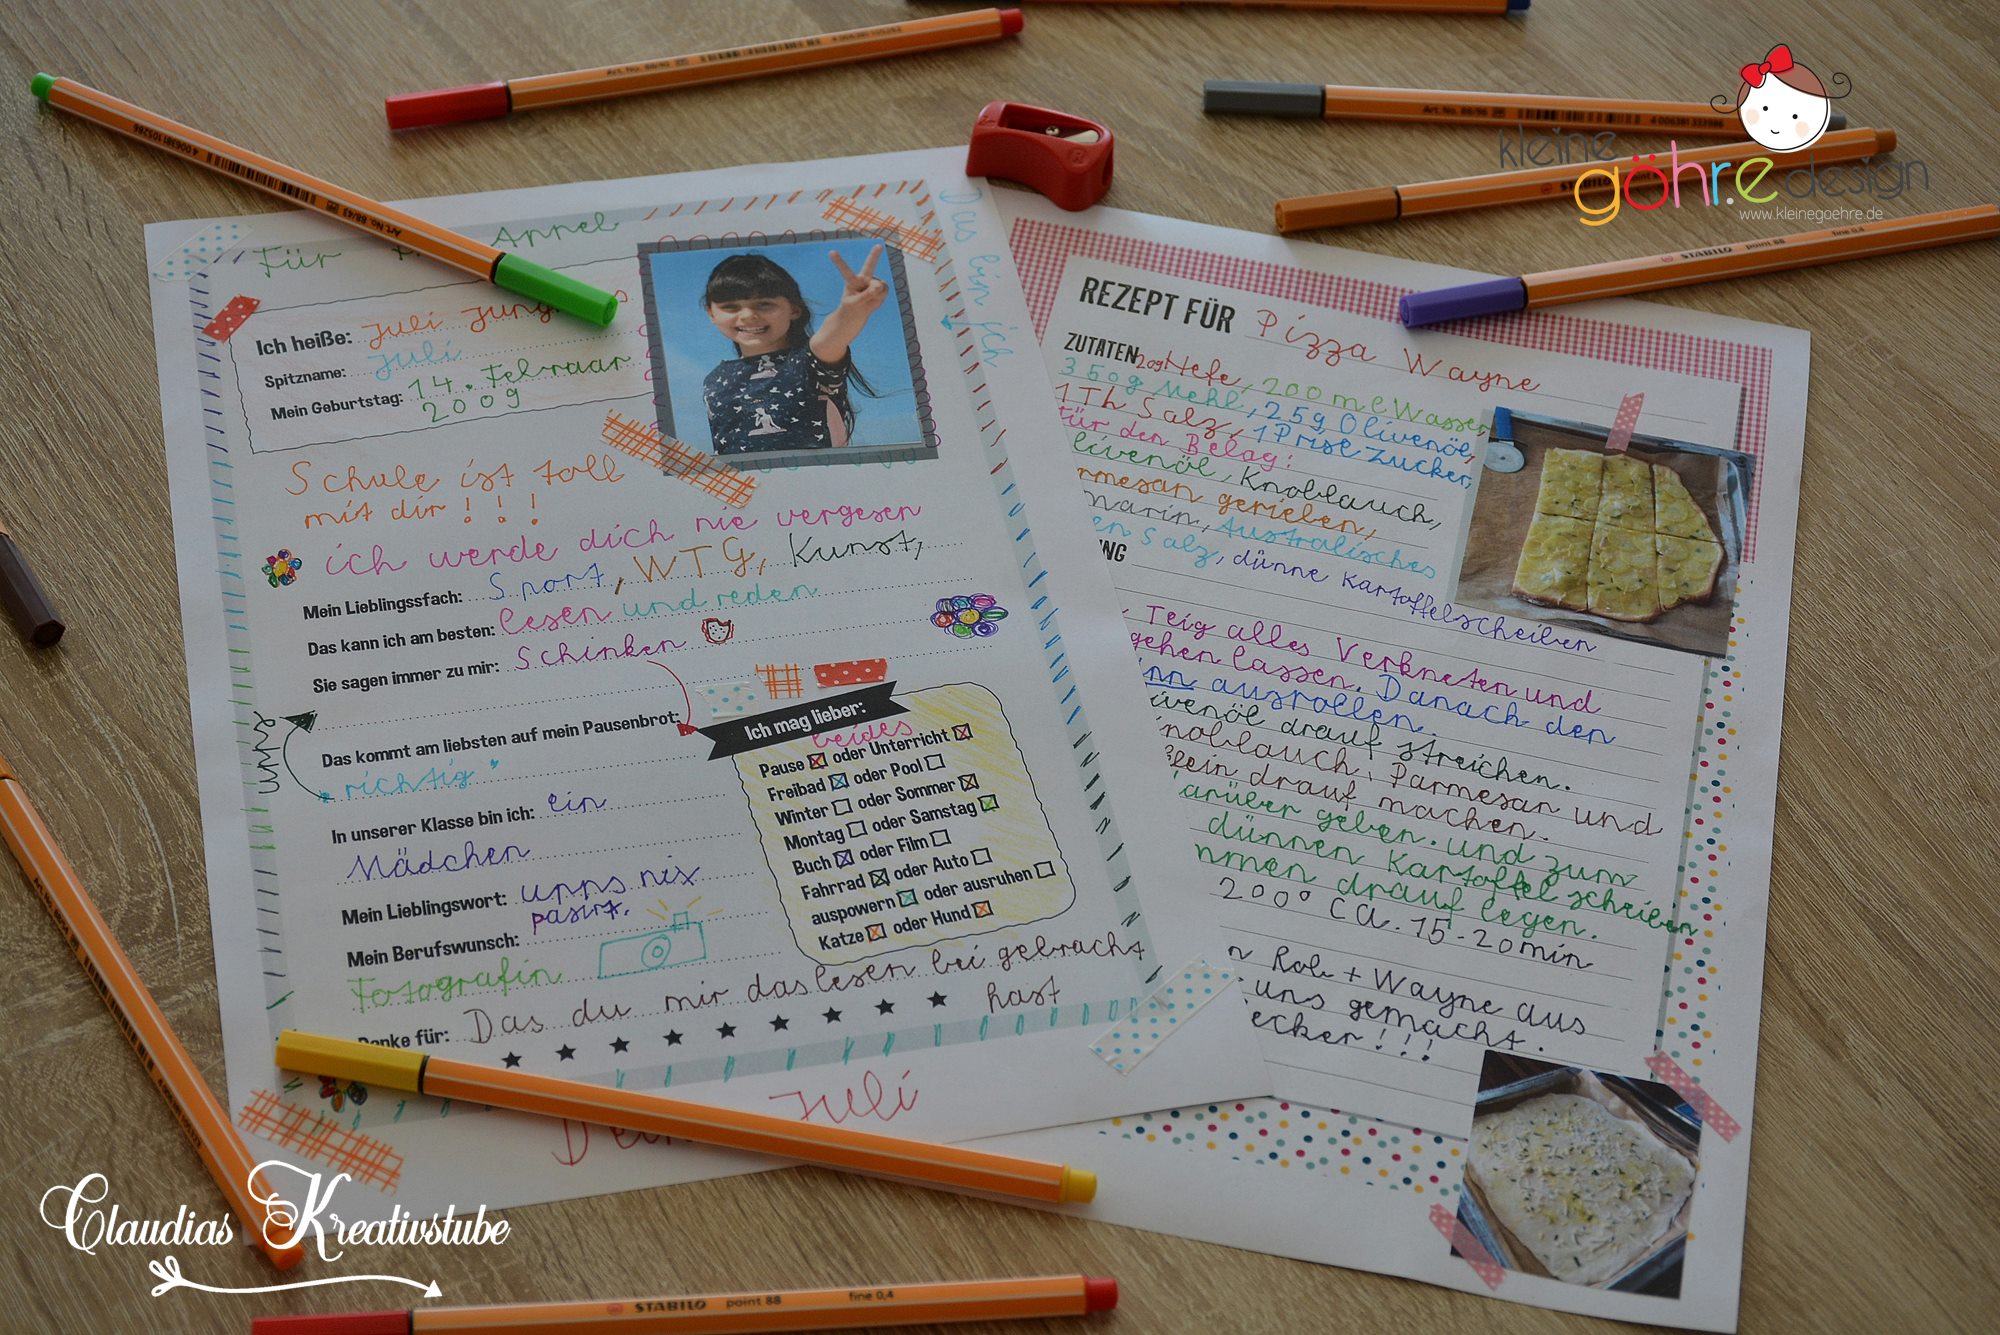 Für Appel
Das bin ich
Ich heiße: Juli Jung
Spitzname: Juli
Mein Geburtstag: 14. Februar
2009
Schule ist toll
mit dir!!!
ich werde dich nie vergesen
Mein Lieblingssfach: Sport, WTG, Kunst,
Das kann ich am besten: lesen und reden
Sie sagen immer zu mir: Schinken
Das kommt am liebsten auf mein Pausenbrot:
richtig
upps
In unserer Klasse bin ich: ein
Mädchen
Mein Lieblingswort: upps nix
pasirt.
Mein Berufswunsch:
Fotografin
Danke für: Das du mir das lesen bei gebracht
hast
Juli
Ich mag lieber:
beides
Pause oder Unterricht
Freibad oder Pool
Winter oder Sommer
Montag oder Samstag
Buch oder Film
Fahrrad oder Auto
auspowern oder ausruhen
Katze oder Hund
REZEPT FÜR Pizza Wayne
ZUTATEN 20g Hefe, 200 ml Wasser
350g Mehl, 25g Olivenöl,
1 Th Salz, 1 Prise Zucker,
für den Belag:
livenöl, Knoblauch,
rmesan gerieben,
marin, Australisches
en Salz, dünne Kartoffelscheiben
NG
Teig alles Verkneten und
gehen lassen. Danach den
nn ausrollen.
ivenöl drauf streichen.
noblauch, Parmesan und
ein drauf machen.
arüber geben. und zum
dünnen Kartoffel schreiben
drauf legen.
200° CA. 15-20 min
n Rob + Wayne aus
uns gemacht.
ecker!!!
kleine
göhr.e design
www.kleinegoehre.de
Claudias Kreativstube
STABILO point 88 fine 0,4
STABILO point 88 fine 0,4
Art. No. 88/43
4 006381 105286